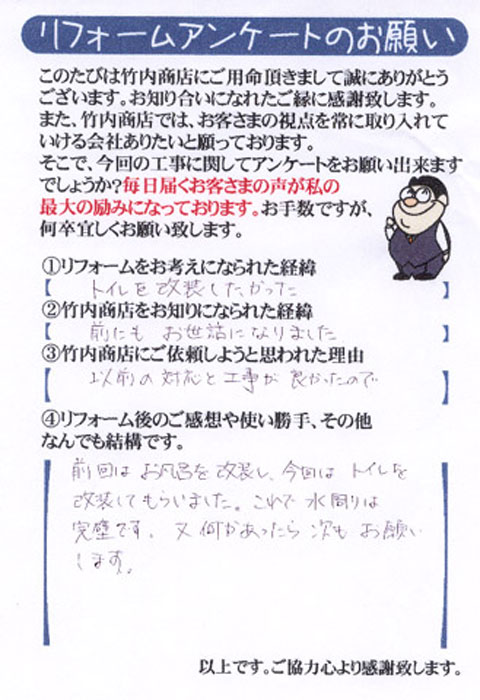 リフォームアンケートのお願い
このたびは竹内商店にご用命頂きまして誠にありがとう
ございます。お知り合いになれたご縁に感謝致します。
また、竹内商店では、お客さまの視点を常に取り入れて
いける会社ありたいと願っております。
そこで、今回の工事に関してアンケートをお願い出来ます
でしょうか?毎日届くお客さまの声が私の
最大の励みになっております。お手数ですが、
何卒宜しくお願い致します。
①リフォームをお考えになられた経緯
【 トイレを改装したかった 】
②竹内商店をお知りになられた経緯
【 前にも お世話になりました 】
③竹内商店にご依頼しようと思われた理由
【 以前の対応と工事が良かったので 】
④リフォーム後のご感想や使い勝手、その他
なんでも結構です。
前回は お風呂を改装し、今回は トイレを
改装してもらいました。これで水周りは
完璧です。又何かあったら次もお願い
します。
以上です。ご協力心より感謝致します。